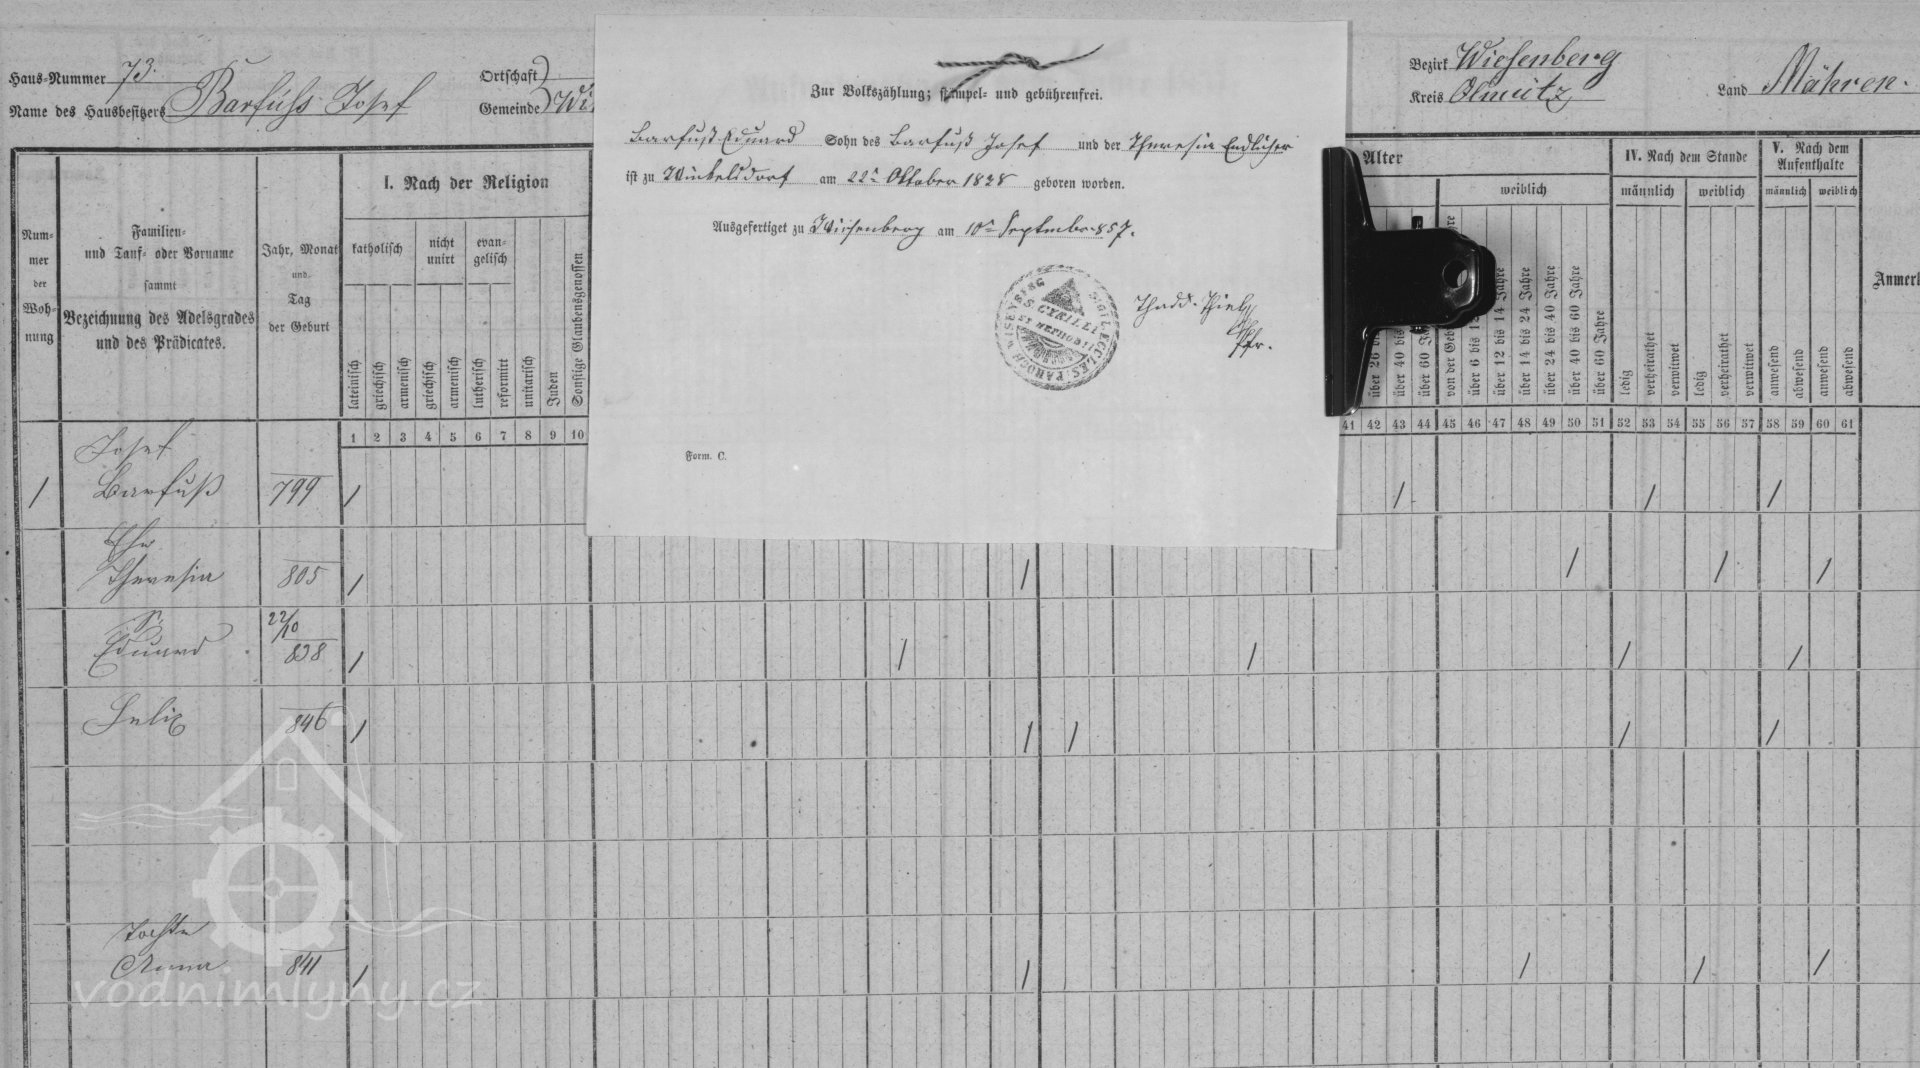 Haus-Nummer 73.
Name des Hausbesitzers Barfuhs Josef
Ortschaft
Gemeinde Wi
Bezirk Wiesenberg
Kreis Olmütz
Land Mähren.
Zur Volkszählung; stempel- und gebührenfrei.
Barfuß Eduard Sohn des Barfuß Josef und der Theresia Endlicher
ist zu Winkelsdorf am 22n Oktober 1838 geboren worden.
Ausgefertiget zu Wiesenberg am 10n September 857.
Thadd.
Pfr.
Form. C.
Num-
mer
der
Woh-
nung
Familien-
und Tauf- oder Vorname
sammt
Bezeichnung des Adelsgrades
und des Prädicates.
Jahr, Monat
und
Tag
der Geburt
I. Nach der Religion
katholisch
nicht
unirt
evan-
gelisch
lateinisch
griechisch
armenisch
griechisch
armenisch
lutherisch
reformirt
unitarisch
Juden
Sonstige Glaubensgenossen
Alter
weiblich
über 26
über 40 bis
über 60
von der
über 6 bis
über 12 bis 14 Jahre
über 14 bis 24 Jahre
über 24 bis 40 Jahre
über 40 bis 60 Jahre
über 60 Jahre
IV. Nach dem Stande
männlich weiblich
ledig
verheirathet
verwitwet
ledig
verheirathet
verwitwet
V. Nach dem
Aufenthalte
männlich weiblich
anwesend
abwesend
anwesend
abwesend
Anmerk
1 2 3 4 5 6 7 8 9 10
41 42 43 44 45 46 47 48 49 50 51 52 53 54 55 56 57 58 59 60 61
Josef
1 Barfuß 799 / / / /
Theresia 805 / / / / /
22/10
Eduard 838 / / / / /
846 / / / / /
Tochter
Anna 841 / / / / /
vodnimlyny.cz